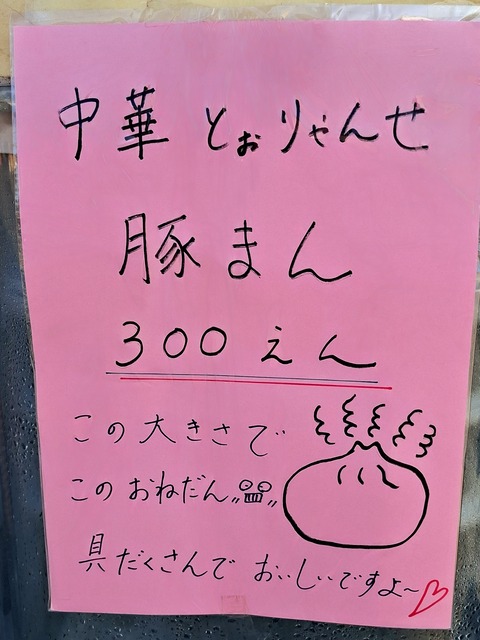 中華 とぉりゃんせ
豚まん
300えん
この大きさで
このおねだん〃 〃
具だくさんで おいしいですよ～♡